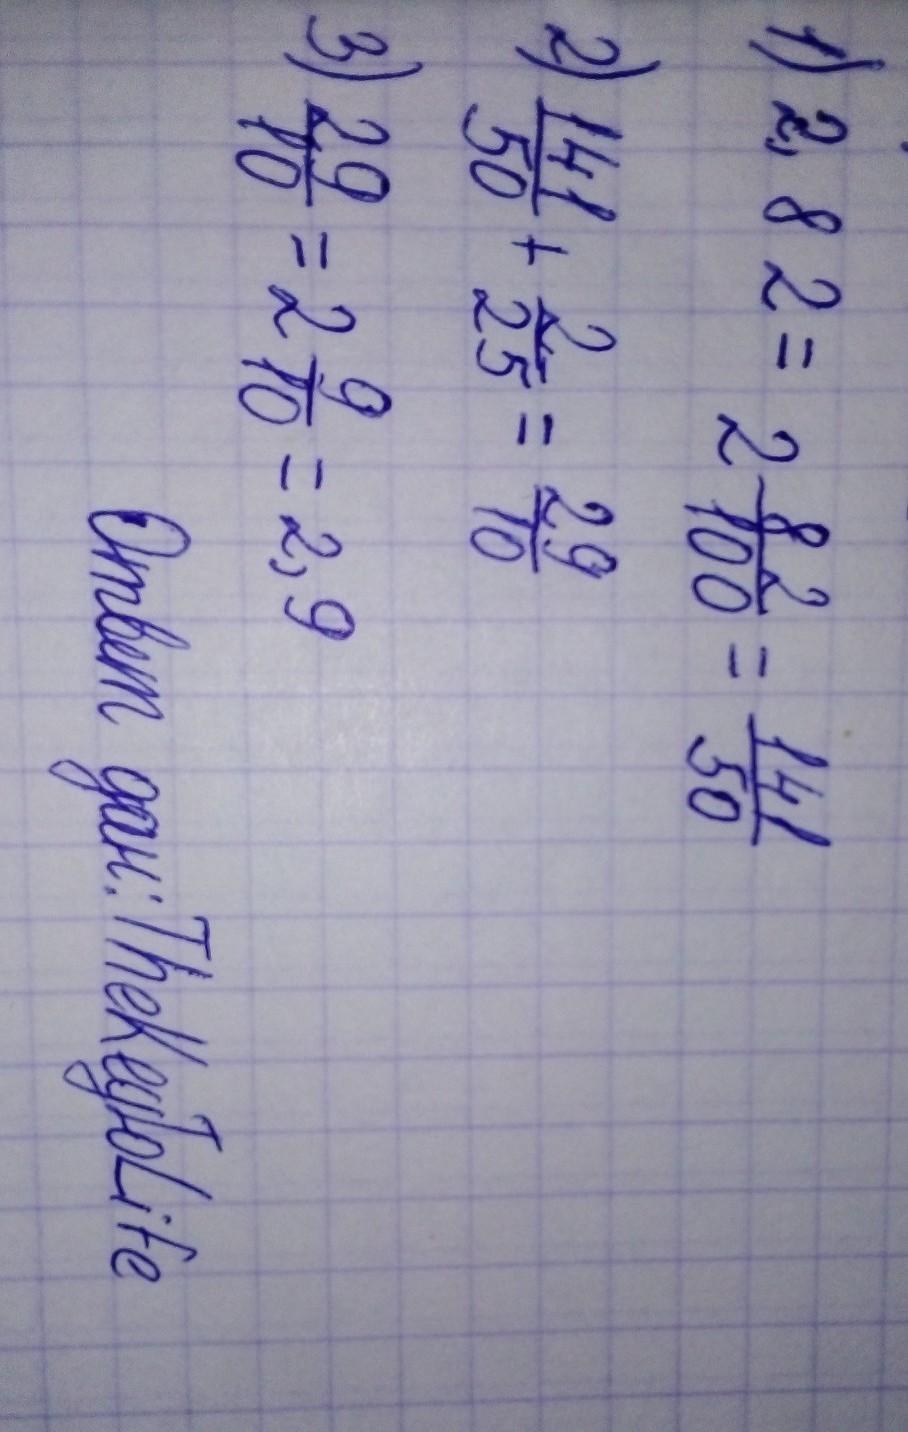 1) 2,82 = 2 82/100 = 141/50
2) 141/50 + 2/25 = 29/10
3) 29/10 = 2 9/10 = 2,9
Ответ дан: TheKeyToLife